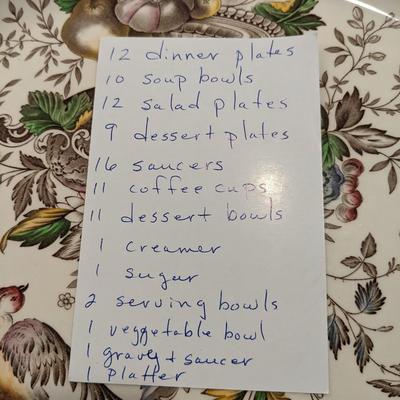 12 dinner plates
10 soup bowls
12 salad plates
9 dessert plates
16 saucers
11 coffee cups
11 dessert bowls
1 creamer
1 sugar
2 serving bowls
1 veggetable bowl
1 gravey + saucer
1 platter